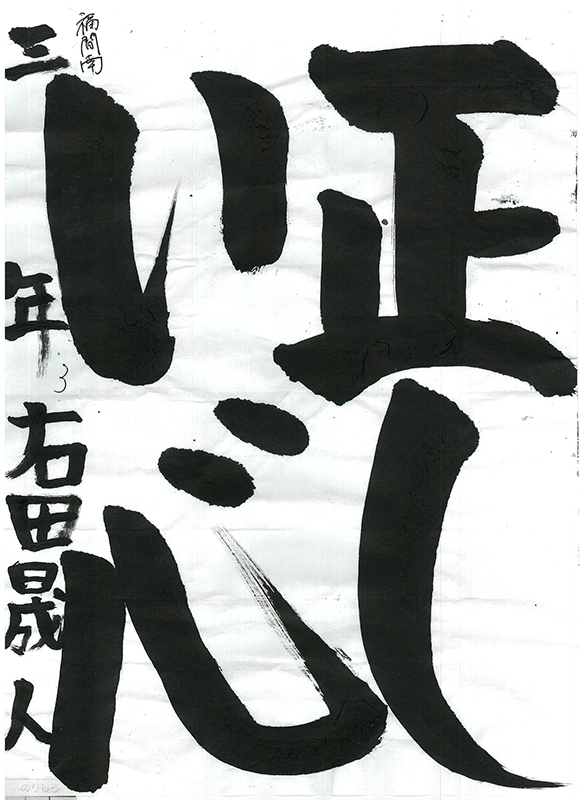 正し
い心
福間南
三年 右田晟人
3
のりしろ